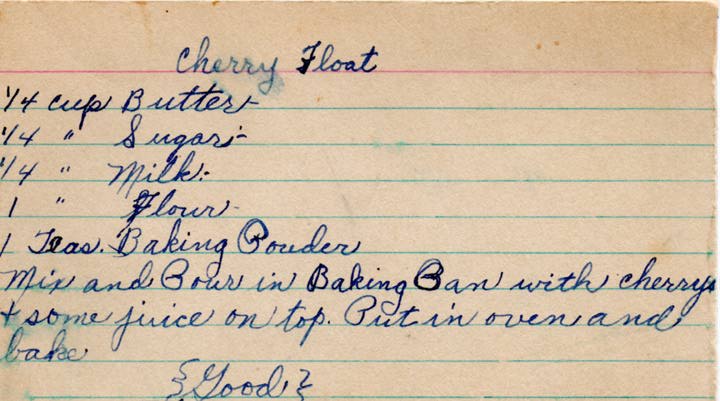 Cherry Float
1/4 cup Butter-
1/4 " Sugar-
1/4 " Milk-
1 " Flour-
1 Teas. Baking Pouder
Mix and Pour in Baking Pan with cherrys
+ some juice on top. Put in oven and
bake
{Good}